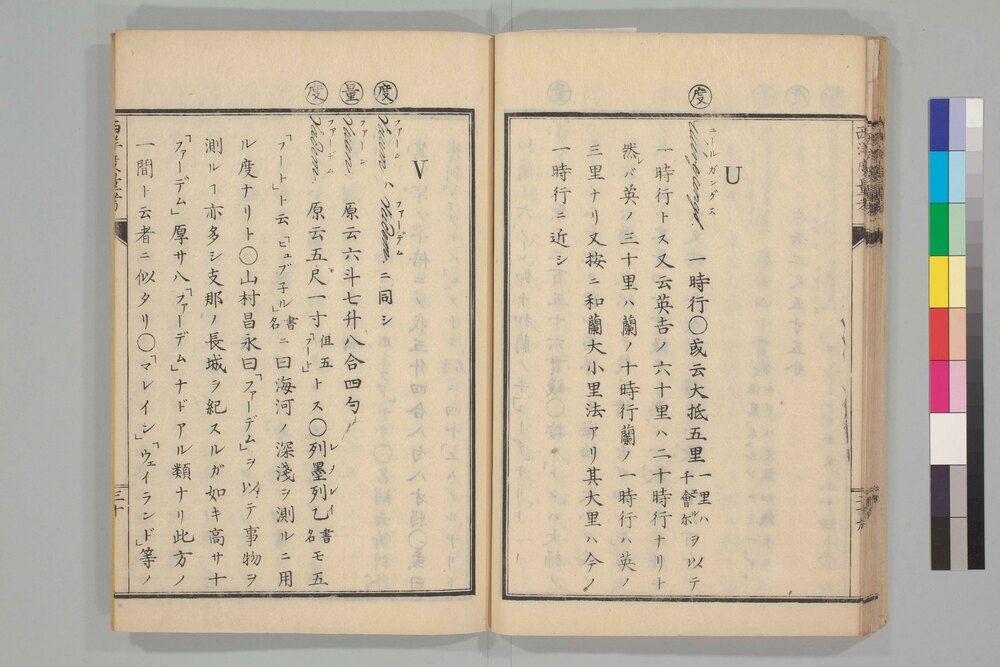 度
U
ユールガングニ
uurgang. 一時行〇或云大抵五里一里ハ千會尓ヲ以テ
一時行トス又云英吉ノ六十里ハ二十時行ナリト
然レバ英ノ三十里ハ蘭ノ十時行蘭ノ一時行ハ英ノ
三里ナリ又按ニ和蘭大小里法アリ其大里ハ今ノ
一時行ニ近シ
度
量
度
V
ファーム ファーデム
Vaam ハ Vadem. ニ同シ
ファーン
Vaam. 原云六斗七升八合四勺
ファーデム
Vadem. 原云五尺一寸但五「フート」トス〇列墨列乙書名モ五
「フート」ト云「ビュブ子ル」書名ニ曰海河ノ深淺ヲ測ルニ用
ル度ナリト〇山村昌永曰「ファーデム」ヲ以テ事物ヲ
測ルヿ亦多シ支那ノ長城ヲ紀スルガ如キ高サ十
「ファーデム」厚サ八「ファーデム」ナドアル類ナリ此方ノ
一間ト云者ニ似タリ〇「マレイン」「ウェイランド」等ノ
三十